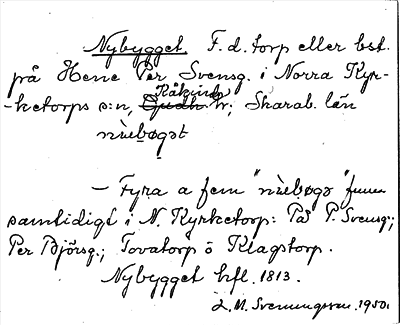 Nybygget. F. d. torp eller bst.
på Hene Per Svensg. i Norra Kyr-
Kåkinds
-ketorps s:n, Gudh. hr; Skarab. län
nỳebøgət
— Fyra a fem "nỳebøgə" funnos
samtidigt i N. Kyrketorp: På P. Svensg.;
Per Björsg.; Tovatorp o Klagstorp.
Nybygget brfl. 1813.
L. M. Svenungsson. 1950.